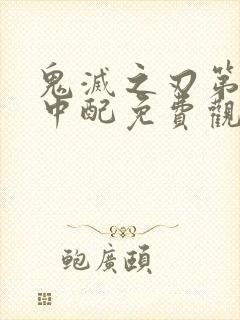 鬼滅之刃第
中配免費觀
鲍廣頤